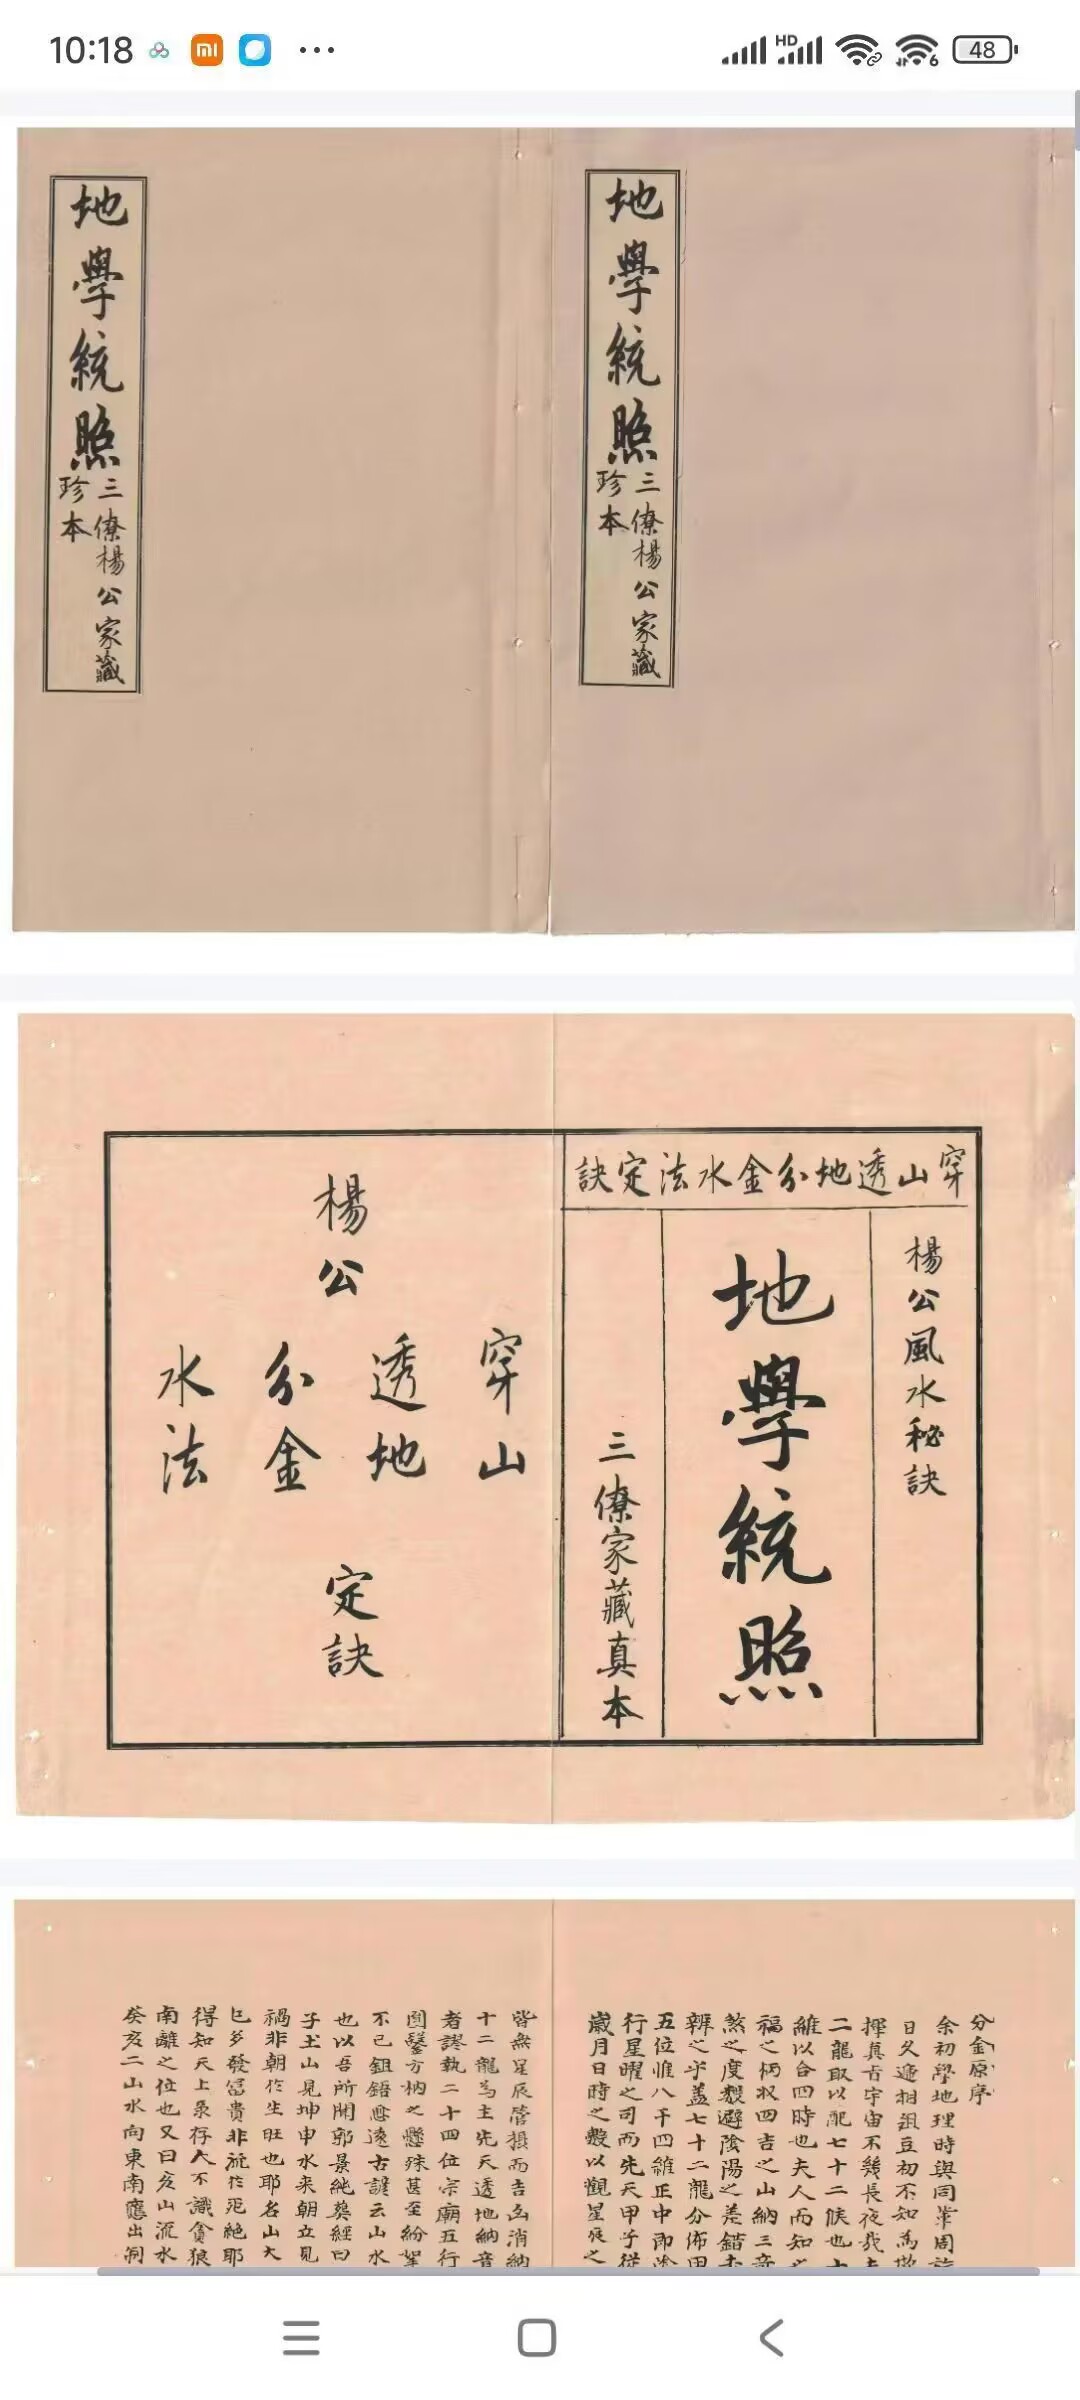 10:18
HD
6
48
地學統照
三僚楊公家藏
珍本
地學統照
三僚楊公家藏
珍本
穿山透地分金水法定訣
楊公風水秘訣
地學統照
三僚家藏真本
楊公
穿山
透地
分金
水法
定訣
分金原序
余初學地理時與同輩周
日久遞相俎豆初不知為
揮真吉宇宙不幾長夜哉
二龍取以配七十二候也
維以合四時也夫人而知
福之柄収四吉之山納三
煞之度數避陰陽之差錯
辨之乎蓋七十二龍分佈
五位惟八千四維正中即
行星曜之司而先天甲子從
歲月日時之數以觀星辰之
皆無星辰管攝而吉凶消納
十二龍為主先天透地納音
者謬執二十四位宗廟五行
圓鑿方枘之懸殊甚至紛挐
不已鉏鋙愈遠古諺云山水
也以吾所聞郭景純葬經曰
子土山見坤申水来朝立見
禍非朝於生旺也耶名山大
已多發富貴非流於死絕耶
得知天上泉存人不識貪狼
南離之位也又曰亥山流水
癸亥二山水向東南應出洞